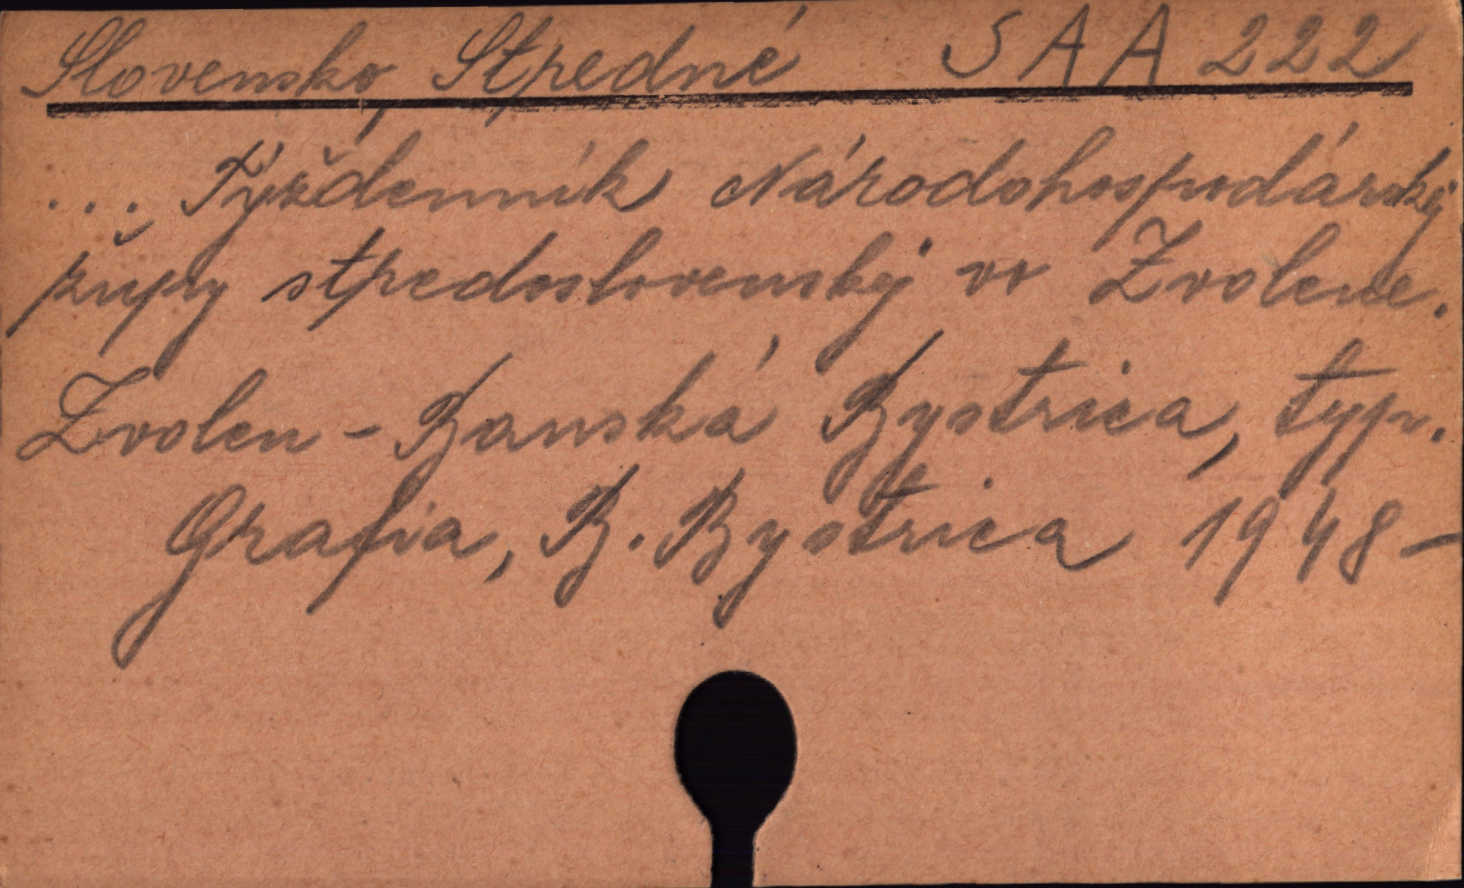 Slovensko, Stredné SAA 222
... Týždenník Národohospodárský
župy stredoslovenský vo Zvolene.
Zvolen - Banská Bystrica, typ.
Grafia, B. Bystrica 1948-